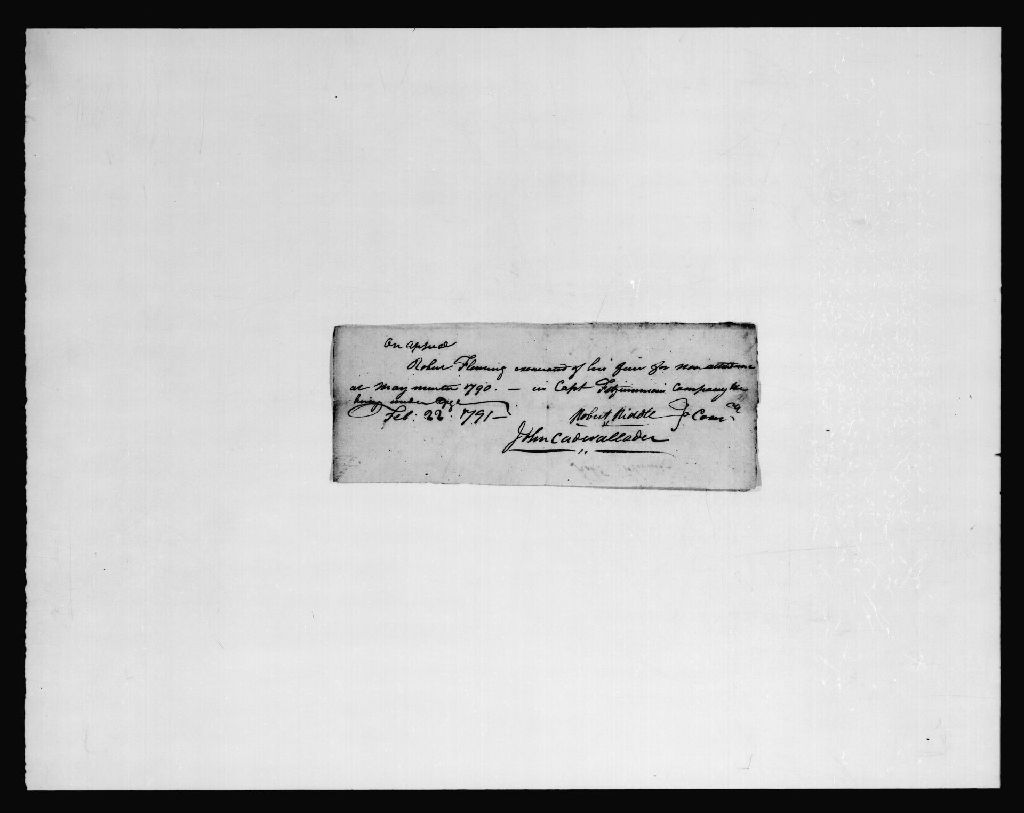 On appeal
Robert Fleming exonerated of his fines for non attendance
at May muster 1790. — in Capt Fitzsimmons Company he
being under age
Feb: 22. 1791 —
Robert Riddle } Com
John Cadwallader